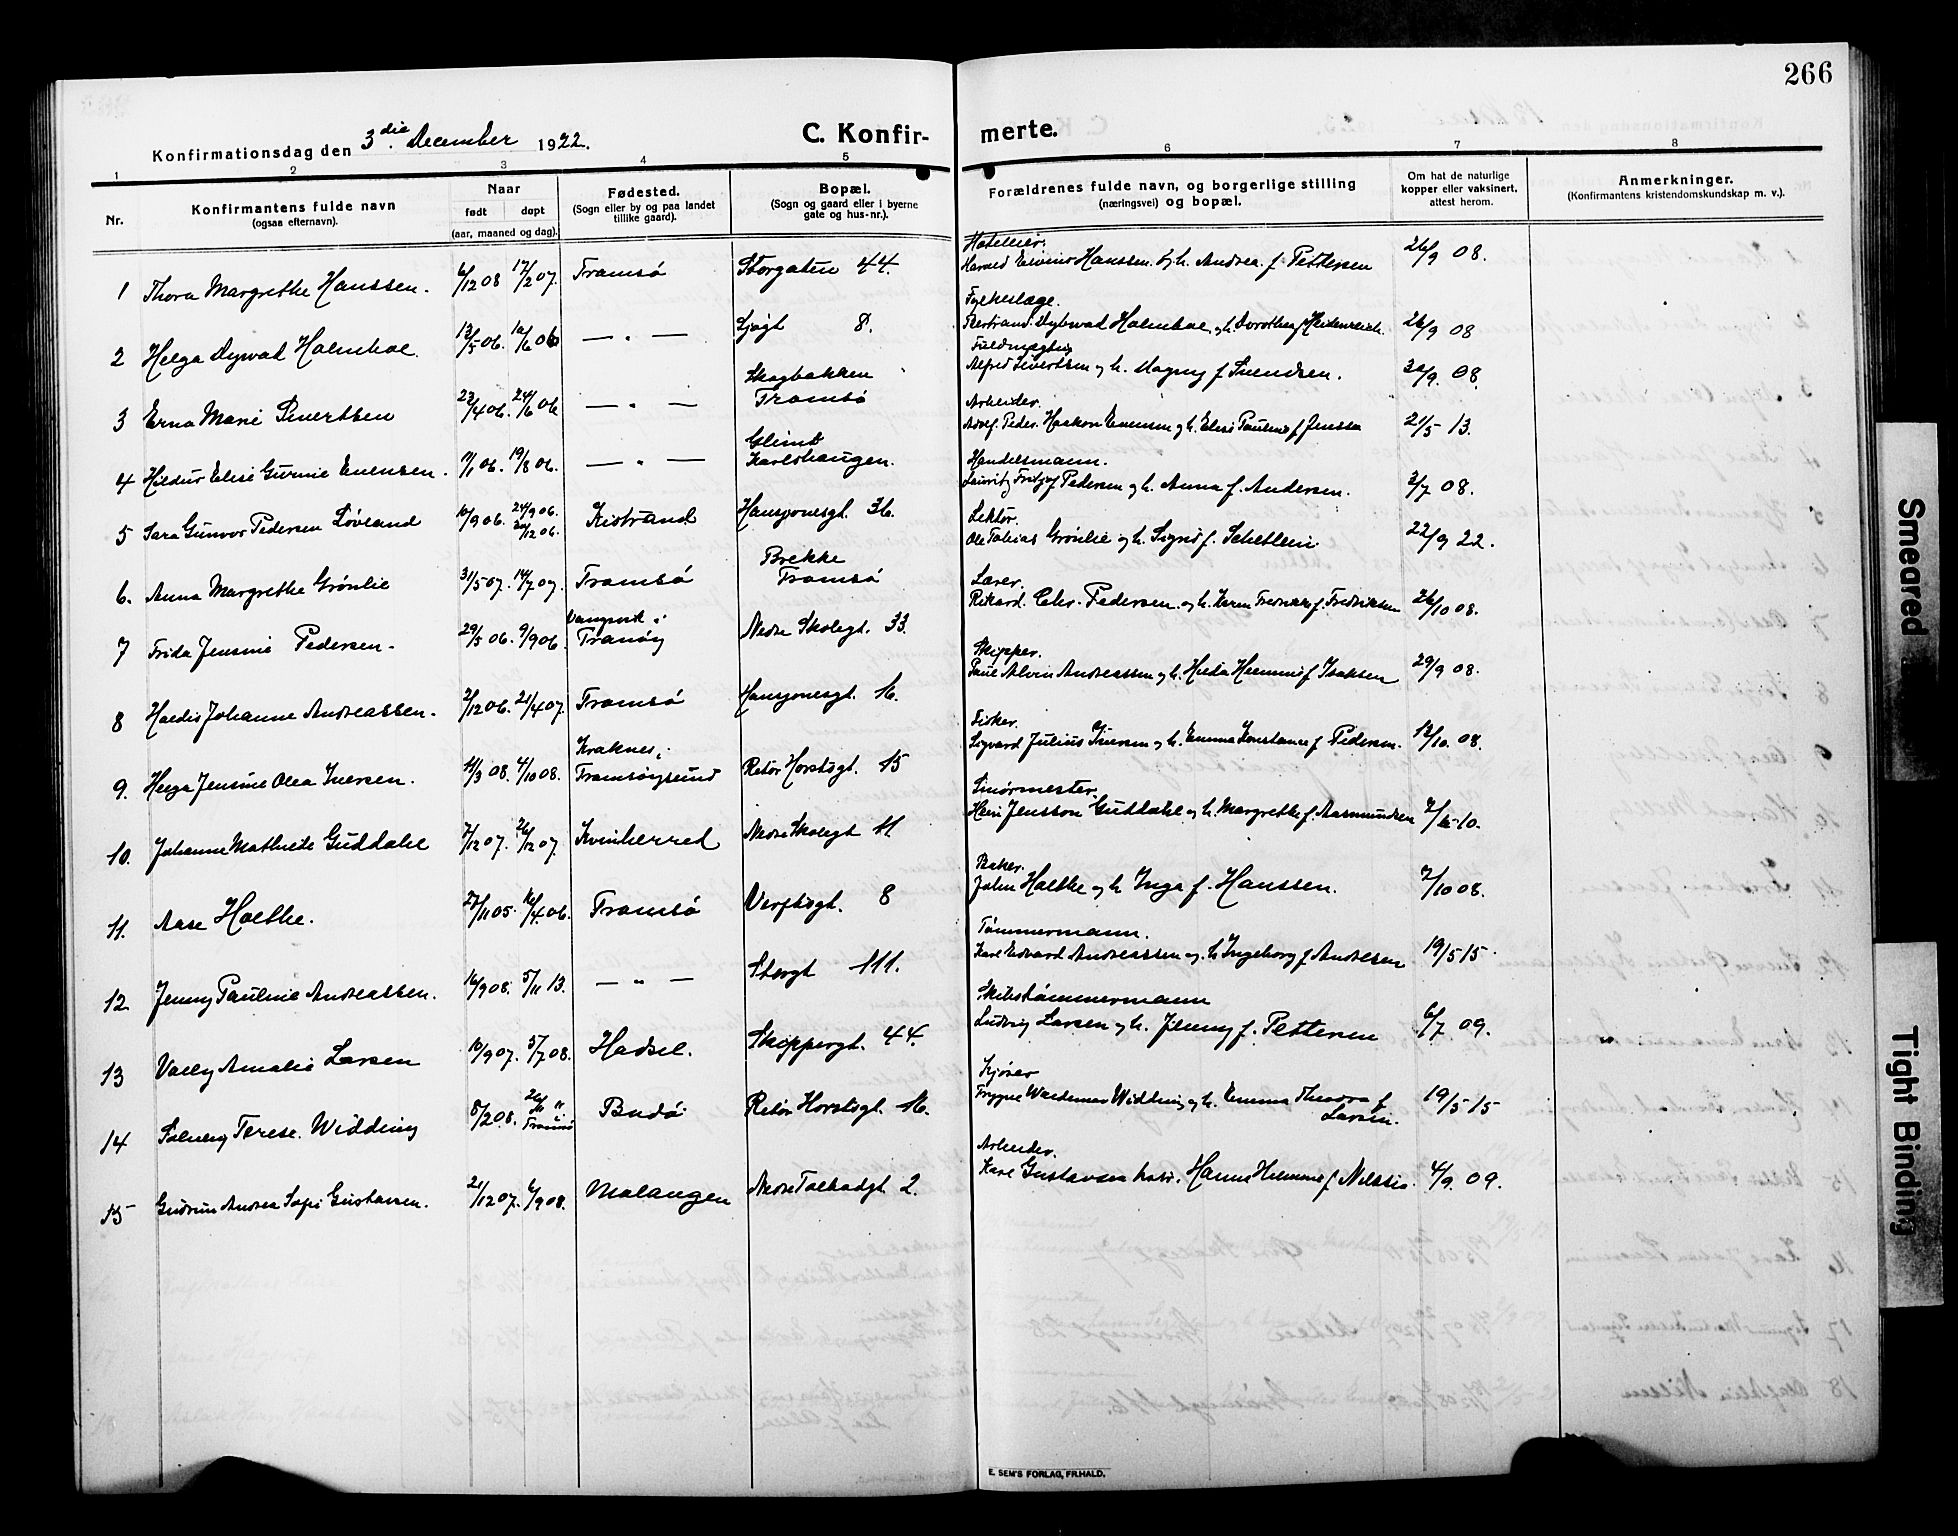 266
Konfirmationsdag den 3die December 1922.
C. Konfir- merte.
1 2 3 4 5 6 7 8
Nr.
Konfirmantens fulde navn
(ogsaa efternavn).
Naar
født døpt
(aar, maaned og dag).
Fødested.
(Sogn eller by og paa landet
tillike gaard).
Bopæl.
(Sogn og gaard eller i byerne
gate og hus-nr.).
Forældrenes fulde navn, og borgerlige stilling
(næringsvei) og bopæl.
Om hat de naturlige
kopper eller vaksinert,
attest herom.
Anmerkninger.
(Konfirmantens kristendomskundskap m. v.).
Hotelier.
1 Thora Margrethe Hanssen. 6/12 08 17/2 07. Tromsø Storgaten 44. Hanssen og h. Andrea f. Pettersen 26/9 08.
Fylkeslæge.
2 Helga Dywad Holmboe. 13/5 06. 10/6 06 — " — Sjøgt 8. Bertrand Dybwad Holmboe, og h. Dorothea f Heidenreich 26/9 08
Fuldmægtig
3 Erna Marie Sivertsen 23/4 06. 24/6 06 — " — Skogbakken
Tromsø Alfred Sivertsen og h. Magny f Svendsen. 30/9. 08.
Arbeider.
4 Hildur Elise Gurine Evensen. 11/1 06. 19/8 06. — " — Karlshaugen. Peder Haakon Evensen og h. Elise Pauline f Jenssen 21/5 13.
Handelsmann.
5 Sara Gunvor Pedersen Løvland 10/9 06. 24/9 06.
30/12 06. Kistrand Hansjonesgt. 36. Lauritz Fritjof Pedersen og h. Anna f. Andersen. 2/7 08.
Lektor.
6. Anna Margrethe Grønlie 31/5 07. 14/7 07. Tromsø Brekke
Tromsø Ole Tobias Grønlie og h. Sigrid f. Schetlein 22/9 22.
Lærer.
7 Frida Jensine Pedersen. 29/5 06. 9/9 06. Vangsvik i
Tranøy Nedre Skolegt. 33. Rikard Chr. Pedersen og h. Karen Fredrikke f. Fredriksen 26/10 08.
Skipper.
8 Haldis Johanne Andreassen. 2/12 06. 21/4 07. Tromsø Hansjonesgt. 16. Paul Alvin Andreassen og h. Hilda Helmine f Isaksen 29/9 08.
Fisker.
9. Helga Jensine Olea Iversen. 11/3 08. 4/10 08. Kraknes i
Tromsøysund Rektor Horstsgt. 15 Sigvard Julius Iversen og h. Emma Konstance f Pedersen. 12/10. 08.
Smørmester.
10. Johanne Mathilde Guddahl 7/12 07. 26/12 07. Kvinherred Nedre Skolegt 11. Jensson Guddahl og h. Margrethe f. Aasmundsen
Baker.
11. Aase Holthe. 27/11 05. 16/4 06. Tromsø Verftsgt. 8 John Holthe og h Inga f. Hanssen. 7/10 08.
Tømmermann.
12 Jenny Pauline Andreassen. 16/9 08. 5/11 13. — " — Storgt 111. Karl Edvard Andreassen og h Ingeborg f Andresen 19/5 15.
Skibstømmermann
13 Vally Amalie Larsen 10/9 07. 5/7 08. Hadsel. Skippergt. 44. Ludvig Larsen og h. Jenny f. Pettersen 6/7 09.
Kjører
14 Solveig Terese Widding 8/2 08. Tromsø Bodø Rektor Horstsgt. 16. Trygve Waldemar Widding og h. Emma Theodora f
Larsen. 19/5 15
Arbeider.
15 Gudrun Andrea Sofie Gustavsen. 21/12 07. 6/9 08. Malangen Nedre Tolbodgt 2. Karl Gustavsen Hanna Helmine f. Nilssen 4/9. 09.
E. SEM'S FORLAG, FR.HALD.
Smeared
Tight Binding